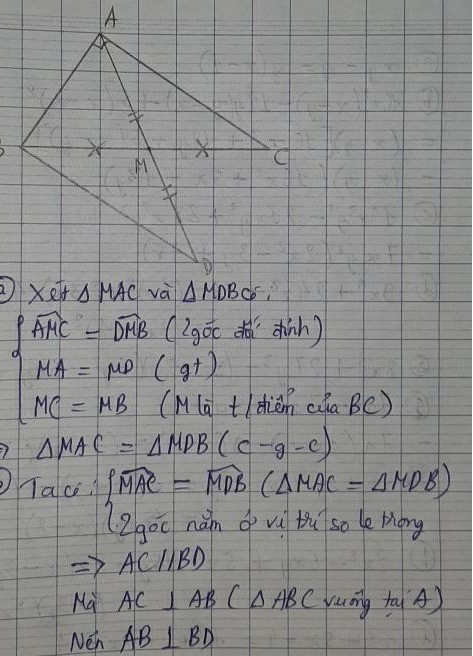 A
B
M
C
D
a) Xét ΔMAC và ΔMDB có:
AMC = DMB (2 góc đối đỉnh)
MA = MD (gt)
MC = MB (M là t/điểm của BC)
=> ΔMAC = ΔMDB (c-g-c)
b) Ta có: MAC = MDB (ΔMAC = ΔMDB)
2 góc nằm ở vị trí so le trong
=> AC // BD
Mà AC ⊥ AB (ΔABC vuông tại A)
Nên AB ⊥ BD